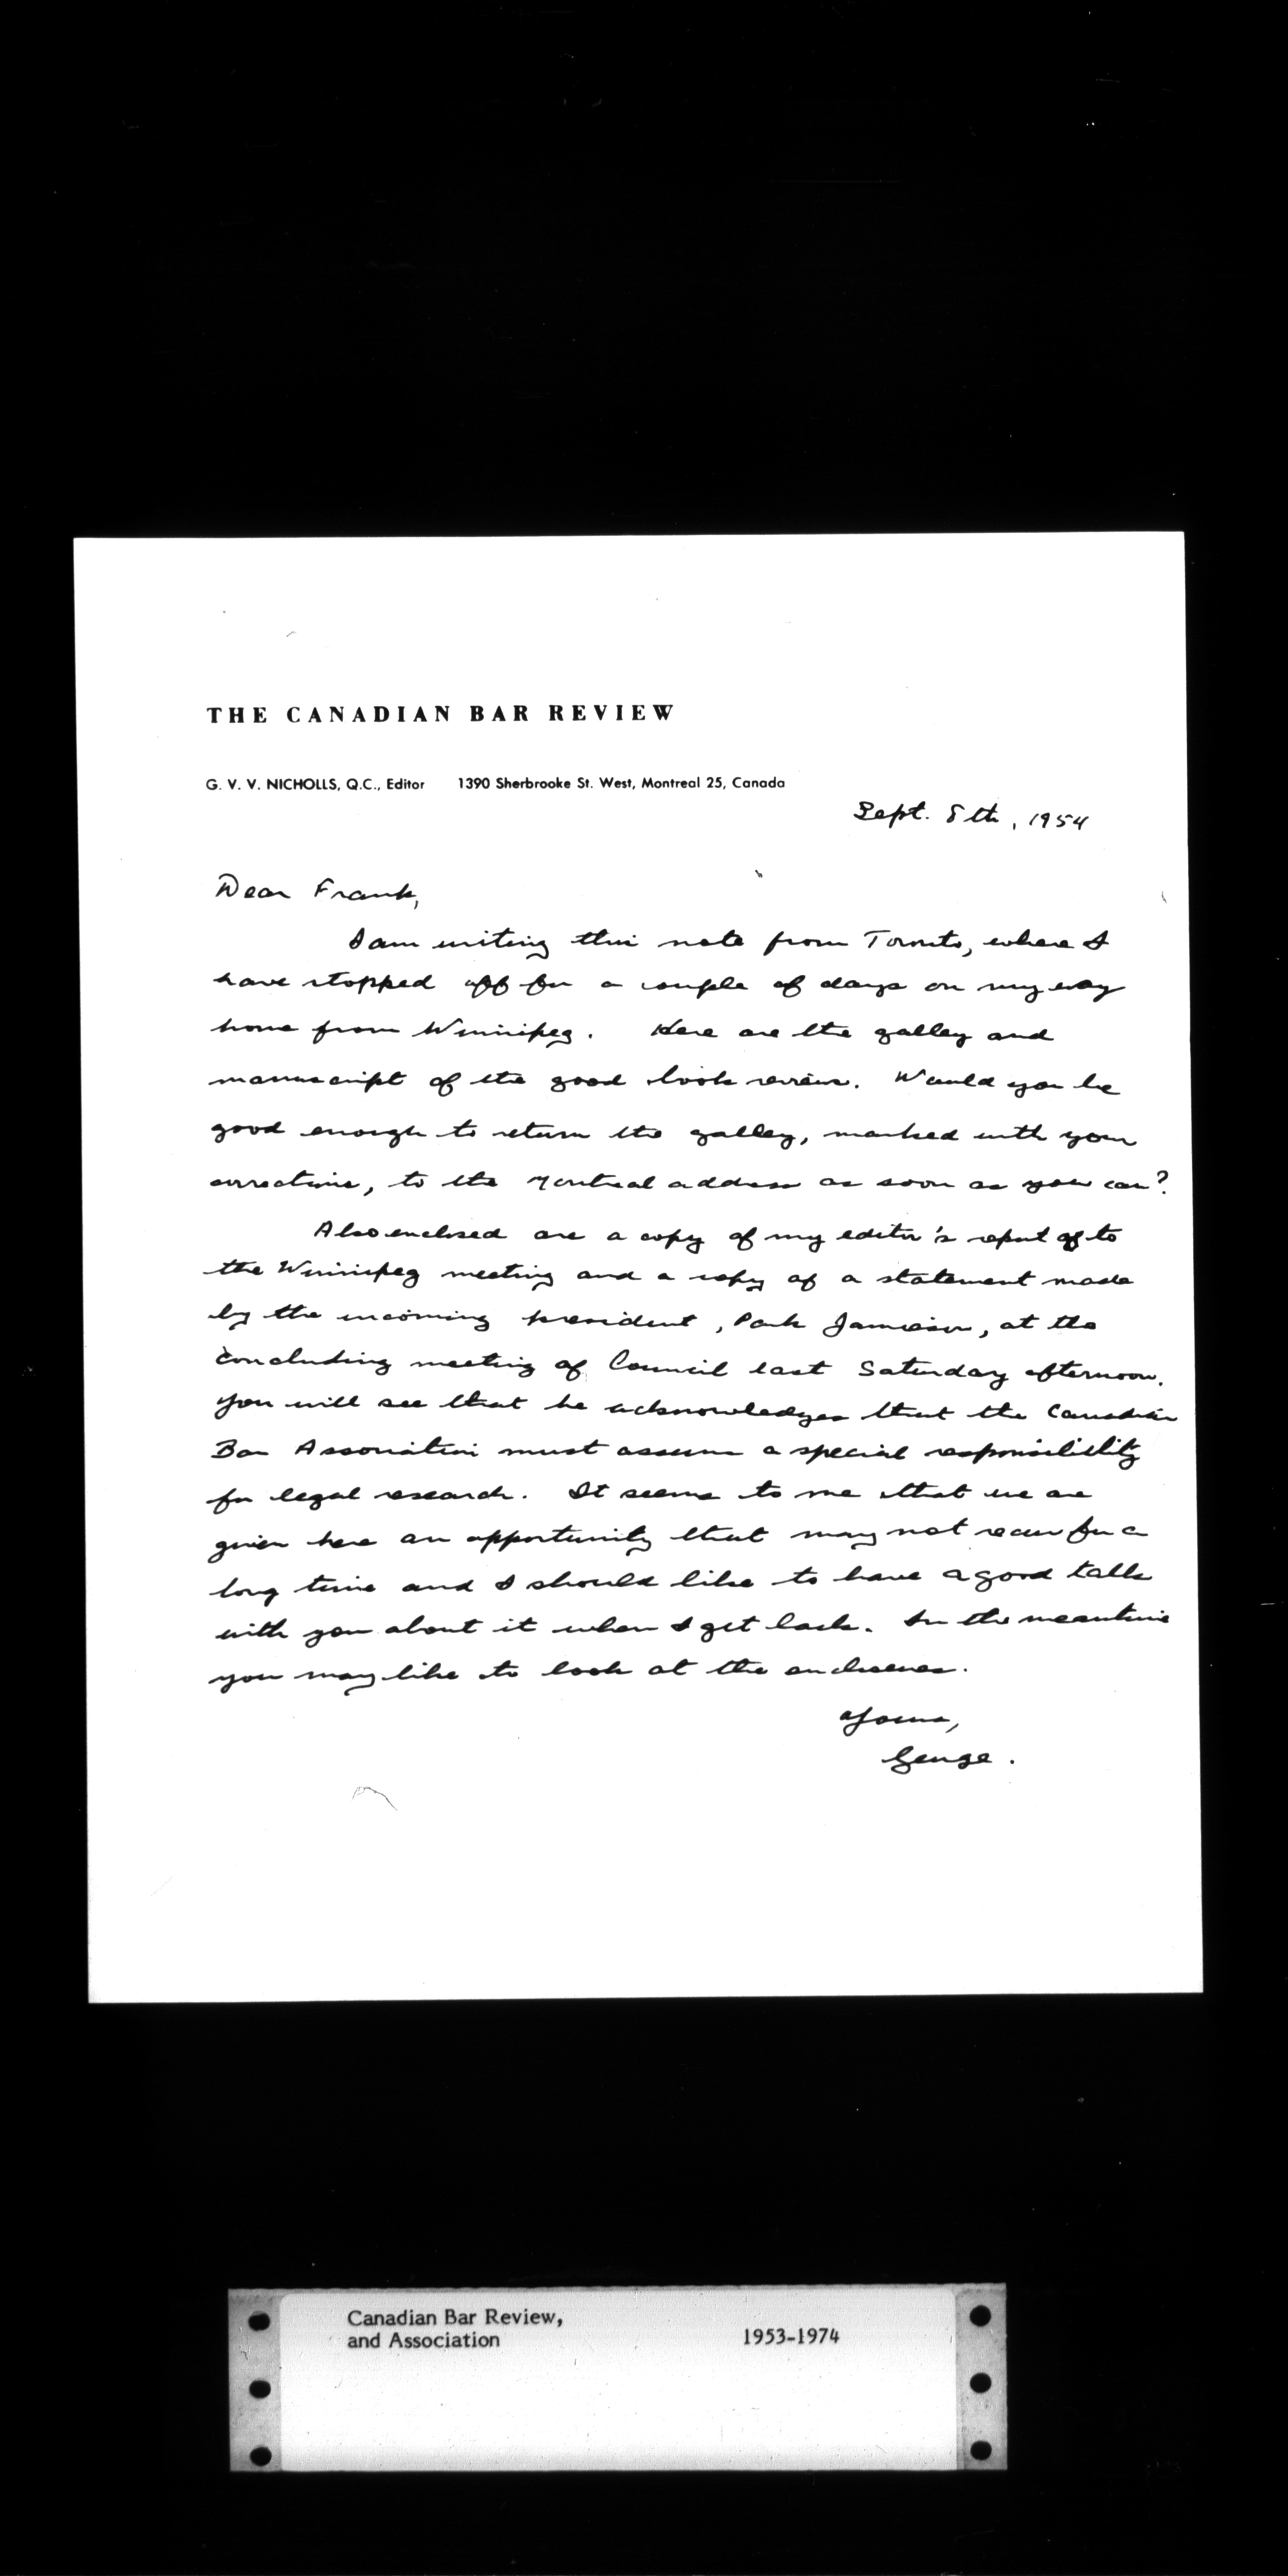 THE CANADIAN BAR REVIEW
G. V. V. NICHOLLS, Q.C., Editor 1390 Sherbrooke St. West, Montreal 25, Canada
Sept. 8th, 1954
Dear Frank,
I am writing this note from Toronto, where I
have stopped off for a couple of days on my way
home from Winnipeg. Here are the galley and
manuscript of the good book review. Would you be
good enough to return the galley, marked with your
corrections, to the Montreal address as soon as you can?
Also enclosed are a copy of my editor's report of to
the Winnipeg meeting and a copy of a statement made
by the incoming president, Park Jamieson, at the
concluding meeting of Council last Saturday afternoon.
You will see that he acknowledges that the Canadian
Bar Association must assume a special responsibility
for legal research. It seems to me that we are
given here an opportunity that may not recur for a
long time and I should like to have a good talk
with you about it when I get back. In the meantime
you may like to look at the enclosures.
Yours,
George.
Canadian Bar Review,
and Association 1953-1974